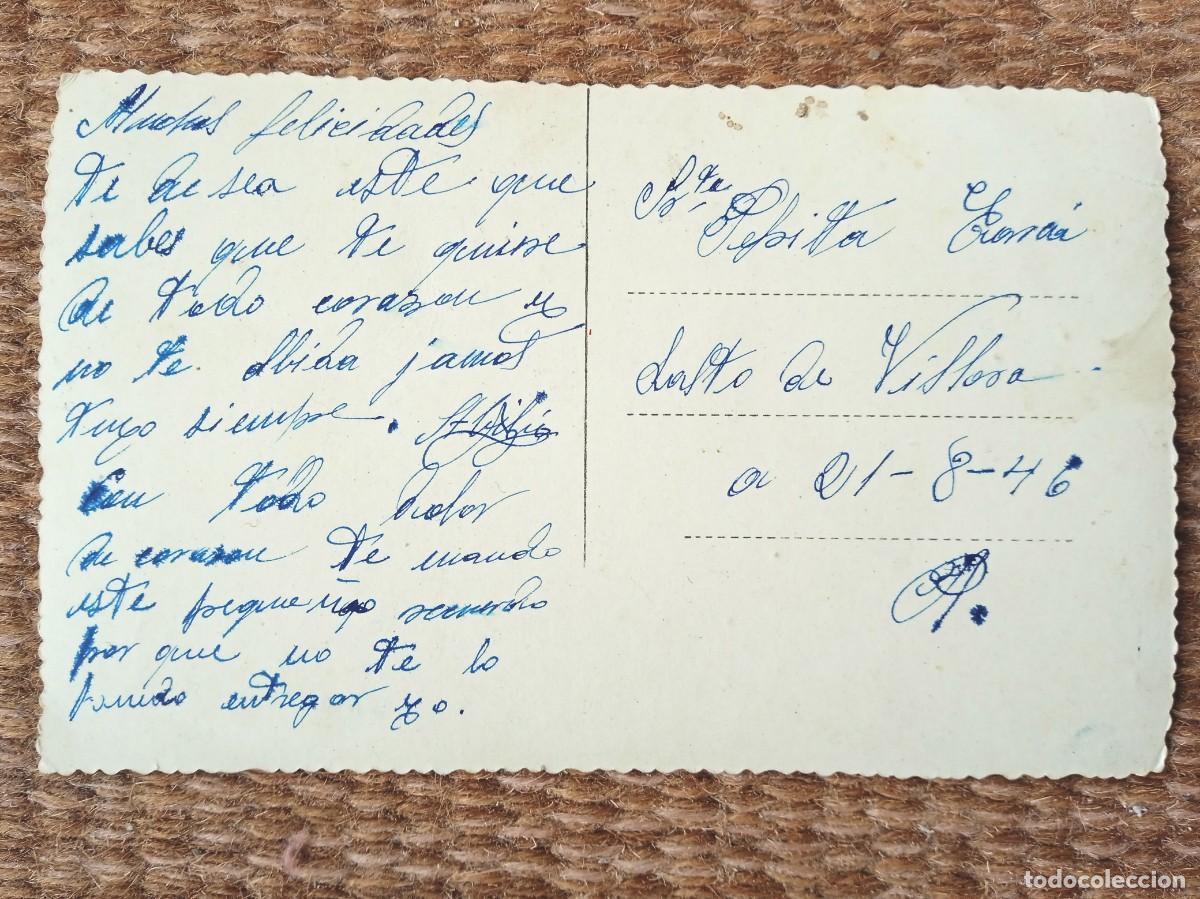 Muchas felicidades
te de sea este que
sabes que te quiere
de todo corazon y
no te olbida jamas
tuyo siempre.
Con todo dolor
de corazon te mando
este pequeño recuerdo
por que no te lo
puedo entregar yo.
Srta
Pepita
de Villora
a 21-8-46
todocoleccion